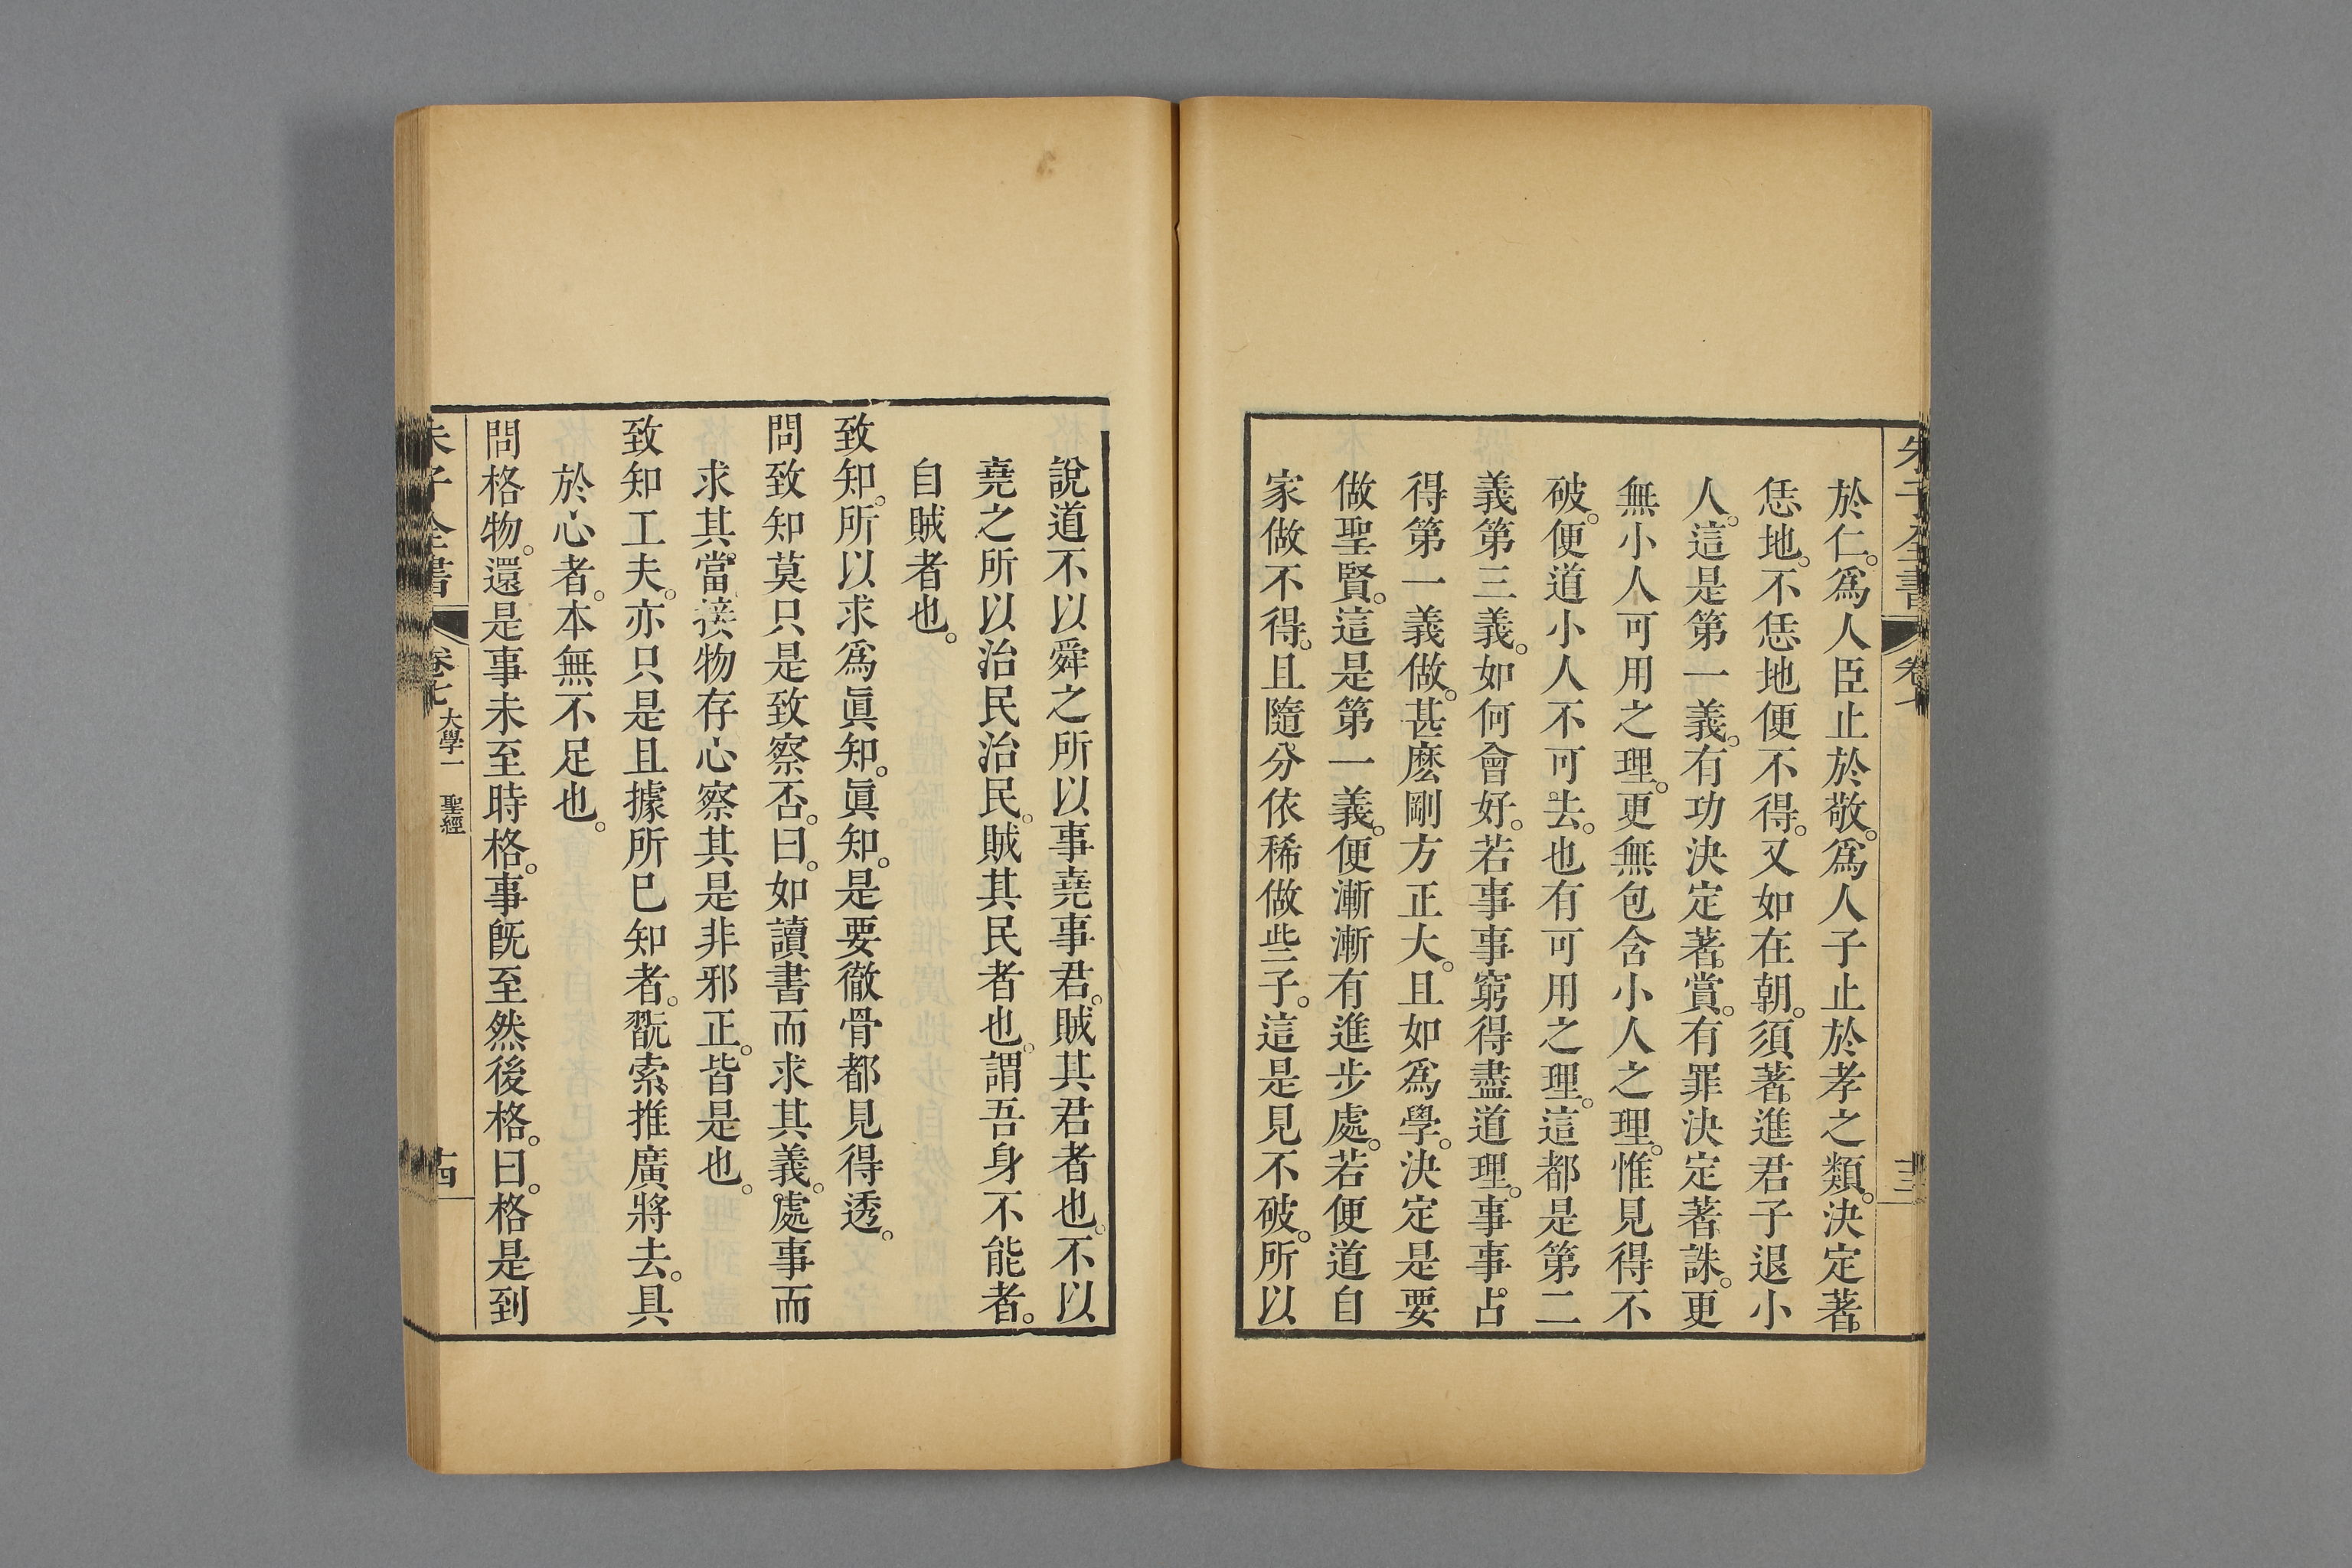 於仁。爲人臣止於敬。爲人子止於孝之類。決定著。
恁地。不恁地便不得。又如在朝。須著進君子退小
人。這是第一義。有功決定著賞。有罪決定著誅。更
無小人可用之理。更無包含小人之理。惟見得不
破。便道小人不可去。也有可用之理。這都是第二
義第三義。如何會好。若事事窮得盡道理。事事占
得第一義做。甚麽剛方正大。且如爲學。決定是要
做聖賢。這是第一義。便漸漸有進步處。若便道自
家做不得。且隨分依稀做些子。這是見不破。所以
說道不以舜之所以事堯事君。賊其君者也。不以
堯之所以治民治民。賊其民者也。謂吾身不能者。
自賊者也。
致知。所以求爲眞知。眞知。是要徹骨都見得透。
問致知莫只是致察否。曰。如讀書而求其義。處事而
求其當。接物存心察其是非邪正。皆是也。
致知工夫。亦只是且據所已知者。翫索推廣將去。具
於心者。本無不足也。
問格物。還是事未至時格。事旣至然後格。曰。格是到
朱子全書
卷七
大學一 聖經